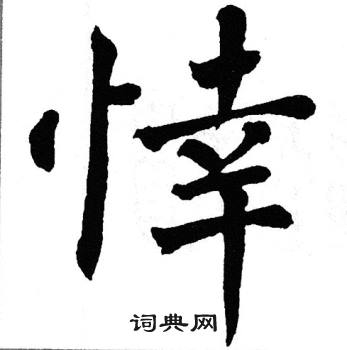 悻
词典网